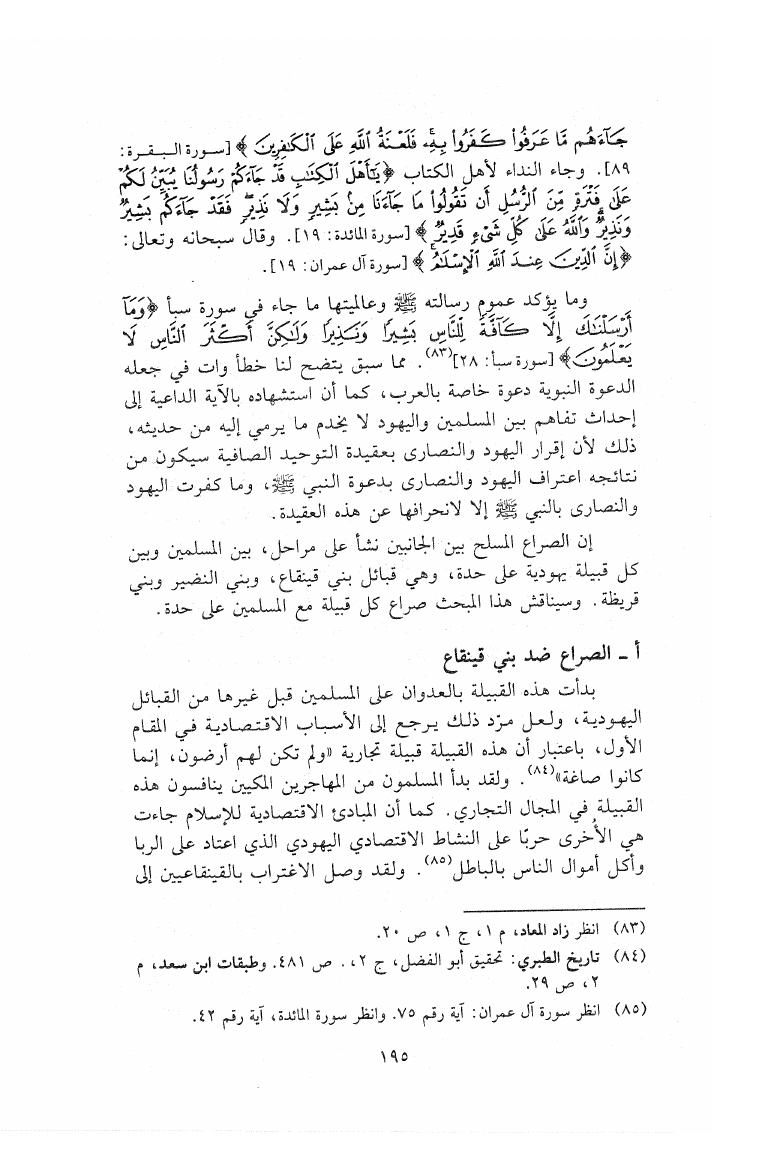 جَآءَهُم مَّا عَرَفُوا۟ كَفَرُوا۟ بِهِۦۚ فَلَعْنَةُ ٱللَّهِ عَلَى ٱلْكَٰفِرِينَ﴾ [سورة البقرة:
٨٩]. وجاء النداء لأهل الكتاب ﴿يَٰٓأَهْلَ ٱلْكِتَٰبِ قَدْ جَآءَكُمْ رَسُولُنَا يُبَيِّنُ لَكُمْ
عَلَىٰ فَتْرَةٍ مِّنَ ٱلرُّسُلِ أَن تَقُولُوا۟ مَا جَآءَنَا مِنۢ بَشِيرٍ وَلَا نَذِيرٍ فَقَدْ جَآءَكُم بَشِيرٌ
وَنَذِيرٌ وَٱللَّهُ عَلَىٰ كُلِّ شَىْءٍ قَدِيرٌ﴾ [سورة المائدة: ١٩]. وقال سبحانه وتعالى:
﴿إِنَّ ٱلدِّينَ عِندَ ٱللَّهِ ٱلْإِسْلَٰمُ﴾ [سورة آل عمران: ١٩].
وما يؤكد عموم رسالته ﷺ وعالميتها ما جاء في سورة سبأ ﴿وَمَآ
أَرْسَلْنَٰكَ إِلَّا كَآفَّةً لِّلنَّاسِ بَشِيرًا وَنَذِيرًا وَلَٰكِنَّ أَكْثَرَ ٱلنَّاسِ لَا
يَعْلَمُونَ﴾ [سورة سبأ: ٢٨](٨٣). مما سبق يتضح لنا خطأ وات في جعله
الدعوة النبوية دعوة خاصة بالعرب، كما أن استشهاده بالآية الداعية إلى
إحداث تفاهم بين المسلمين واليهود لا يخدم ما يرمي إليه من حديثه،
ذلك لأن إقرار اليهود والنصارى بعقيدة التوحيد الصافية سيكون من
نتائجه اعتراف اليهود والنصارى بدعوة النبي ﷺ، وما كفرت اليهود
والنصارى بالنبي ﷺ إلا لانحرافها عن هذه العقيدة.
إن الصراع المسلح بين الجانبين نشأ على مراحل، بين المسلمين وبين
كل قبيلة يهودية على حدة، وهي قبائل بني قينقاع، وبني النضير وبني
قريظة. وسيناقش هذا المبحث صراع كل قبيلة مع المسلمين على حدة.
أ ـ الصراع ضد بني قينقاع
بدأت هذه القبيلة بالعدوان على المسلمين قبل غيرها من القبائل
اليهودية، ولعل مرّد ذلك يرجع إلى الأسباب الاقتصادية في المقام
الأول، باعتبار أن هذه القبيلة قبيلة تجارية «ولم تكن لهم أرضون، إنما
كانوا صاغة»(٨٤). ولقد بدأ المسلمون من المهاجرين المكيين ينافسون هذه
القبيلة في المجال التجاري. كما أن المبادئ الاقتصادية للإسلام جاءت
هي الأُخرى حربًا على النشاط الاقتصادي اليهودي الذي اعتاد على الربا
وأكل أموال الناس بالباطل(٨٥). ولقد وصل الاغتراب بالقينقاعيين إلى
(٨٣) انظر زاد المعاد، م ١، ج ١، ص ٢٠.
(٨٤) تاريخ الطبري: تحقيق أبو الفضل، ج ٢،. ص ٤٨١. وطبقات ابن سعد، م
٢، ص ٢٩.
(٨٥) انظر سورة آل عمران: آية رقم ٧٥. وانظر سورة المائدة، آية رقم ٤٢.
١٩٥